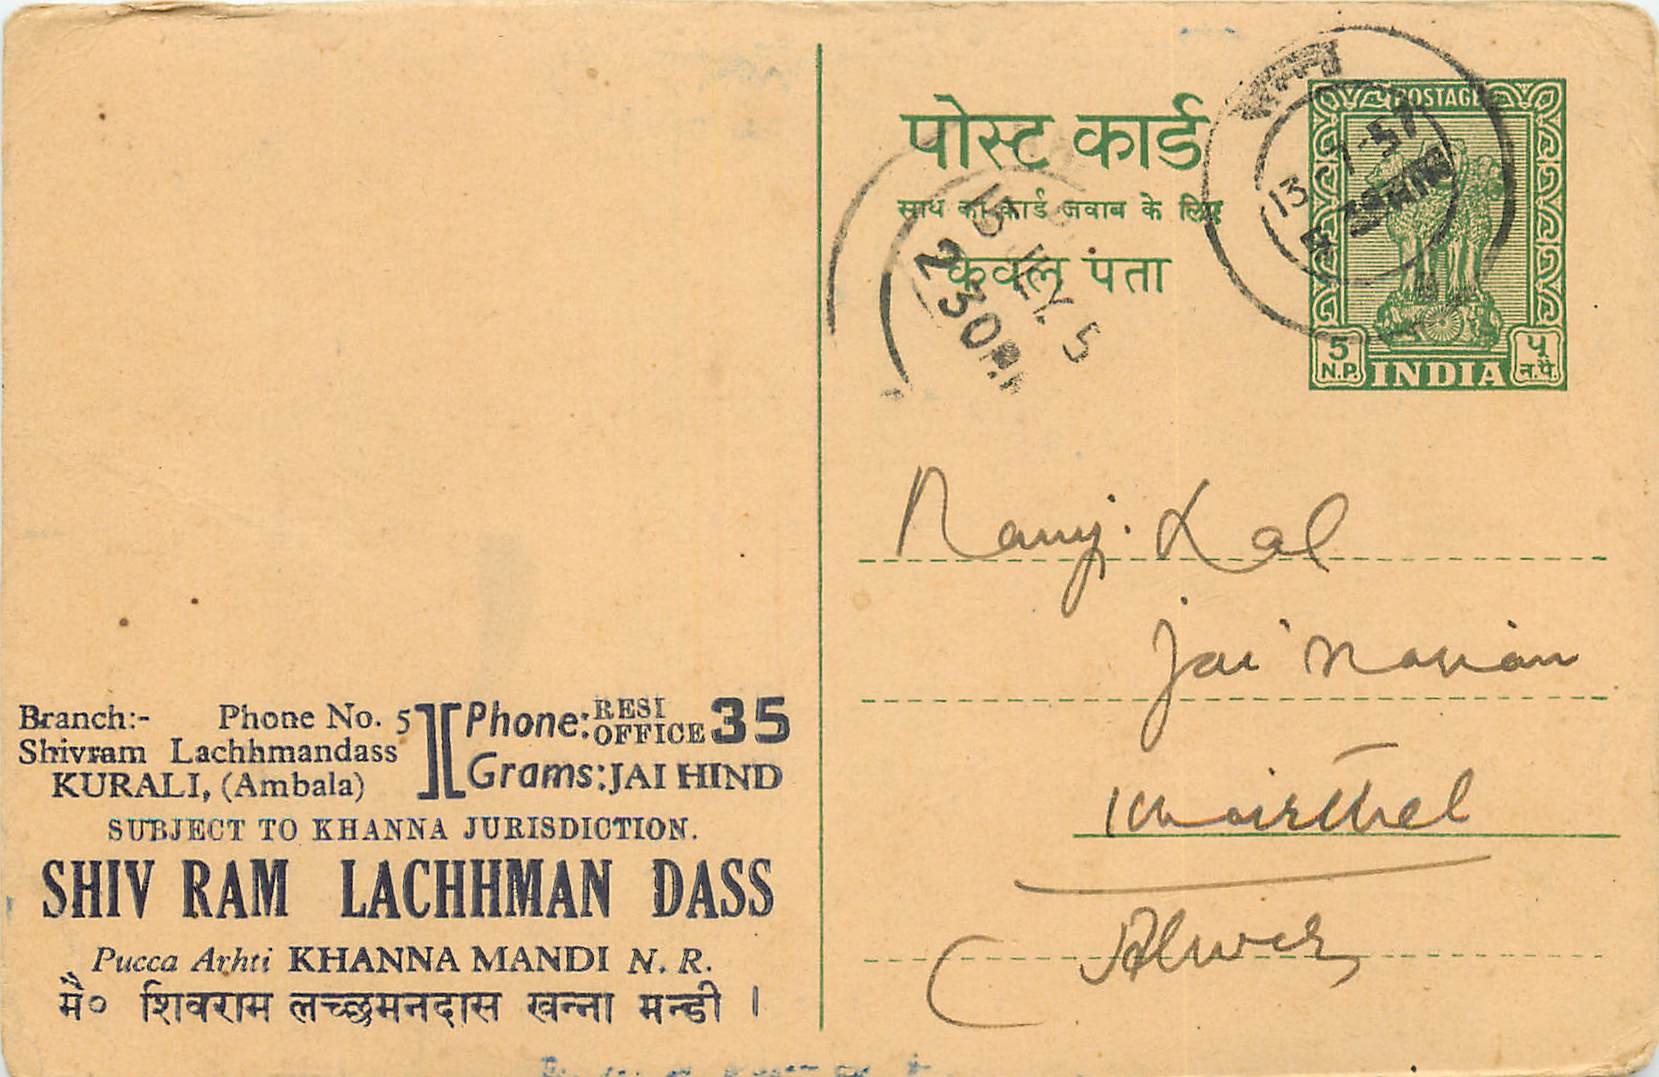 पोस्ट कार्ड
साथ का कार्ड जवाब के लिए
केवल पता
POSTAGE
5 N.P. INDIA ५ न.पै.
13 7-57
15 5
2 30
Ramji Lal
Jai Narian
Khairthal
Alwar
Branch:- Phone No. 5
Shivram Lachhmandass
KURALI, (Ambala)
Phone: RESI OFFICE 35
Grams: JAI HIND
SUBJECT TO KHANNA JURISDICTION.
SHIV RAM LACHHMAN DASS
Pucca Arhti KHANNA MANDI N. R.
मै० शिवराम लच्छमनदास खन्ना मन्डी ।